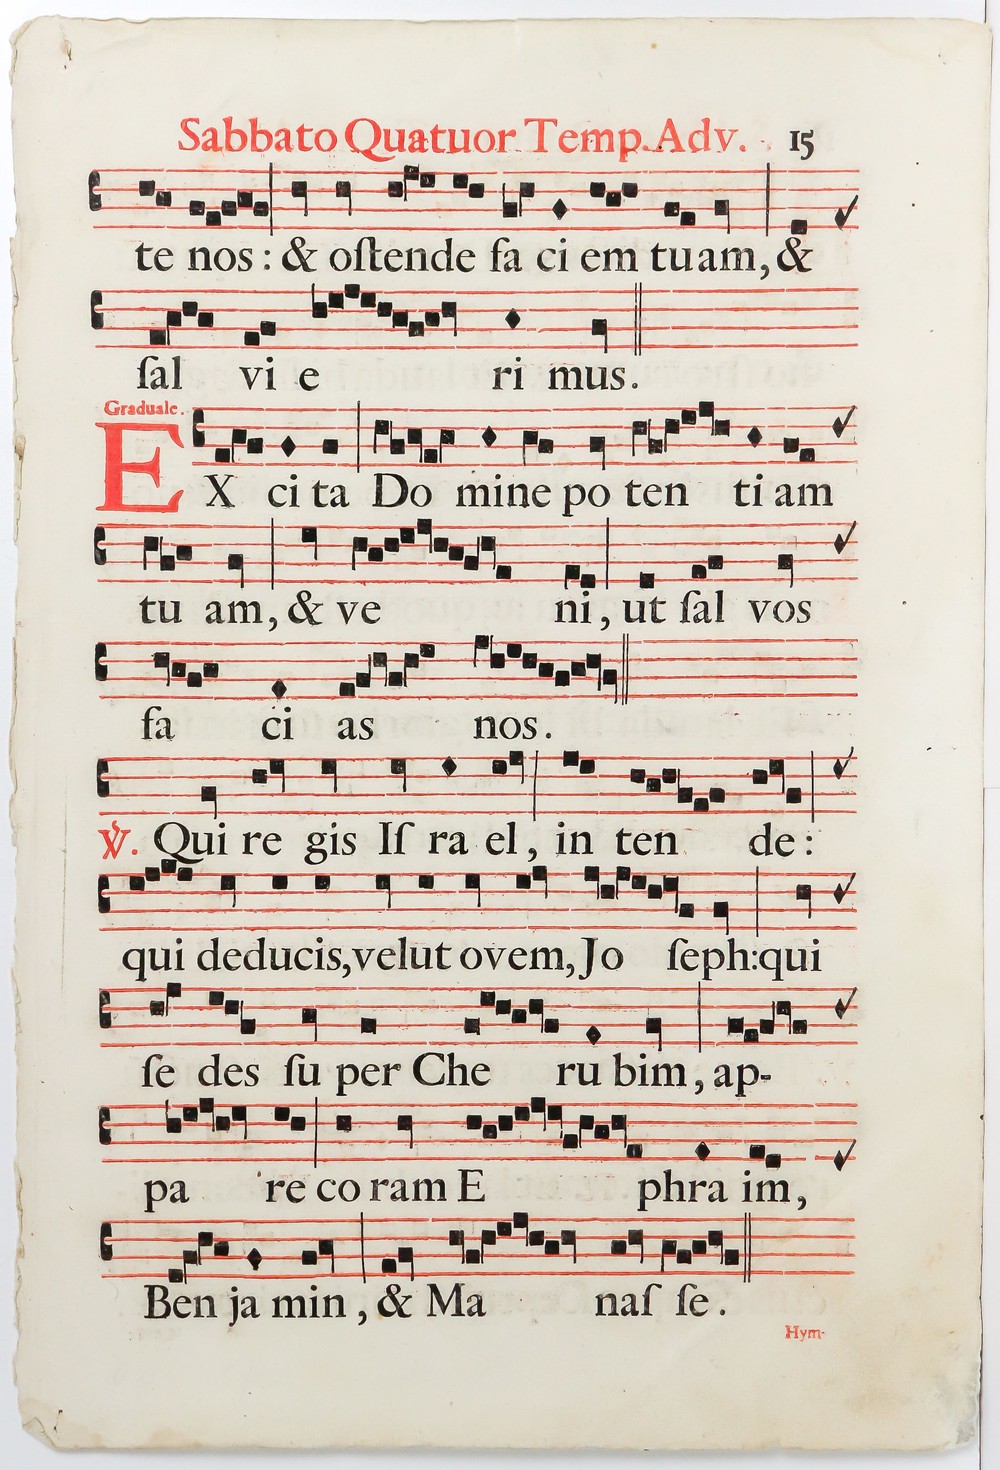 Sabbato Quatuor Temp. Adv. 15
te nos : & oſtende fa ci em tuam, &
ſal vi e ri mus.
Graduale.
EX ci ta Do mine po ten ti am
tu am, & ve ni, ut ſal vos
fa ci as nos.
℣. Qui re gis Iſ ra el, in ten de :
qui deducis, velut ovem, Jo ſeph: qui
ſe des ſu per Che ru bim, ap-
pa re co ram E phra im,
Ben ja min, & Ma naſ ſe.
Hym-